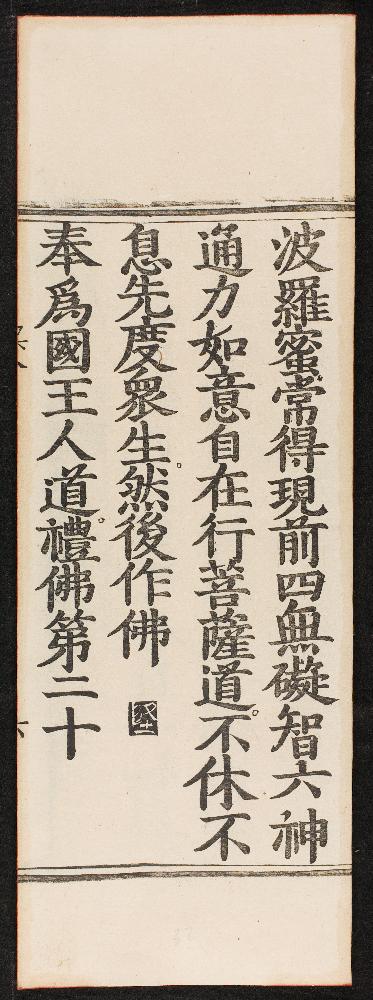 波羅蜜常得現前四無礙智六神
通力如意自在行菩薩道不休不
息先度眾生然後作佛
奉爲國王人道禮佛第二十